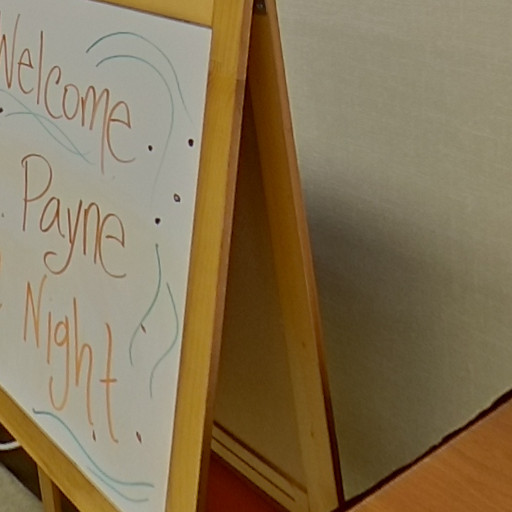 Welcome
Payne
Night